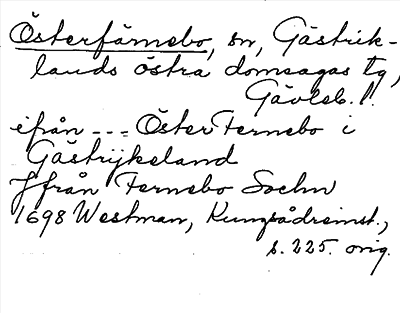 Österfärnebo, sn, Gästrik-
lands östra domsagas tg,
Gävleb. l.
ifrån --= Öster Fernebo i
Gästrijkeland
Jfrån Fernebo Sochn
1698 Westman, Kungsådreinst.,
s. 225. orig.